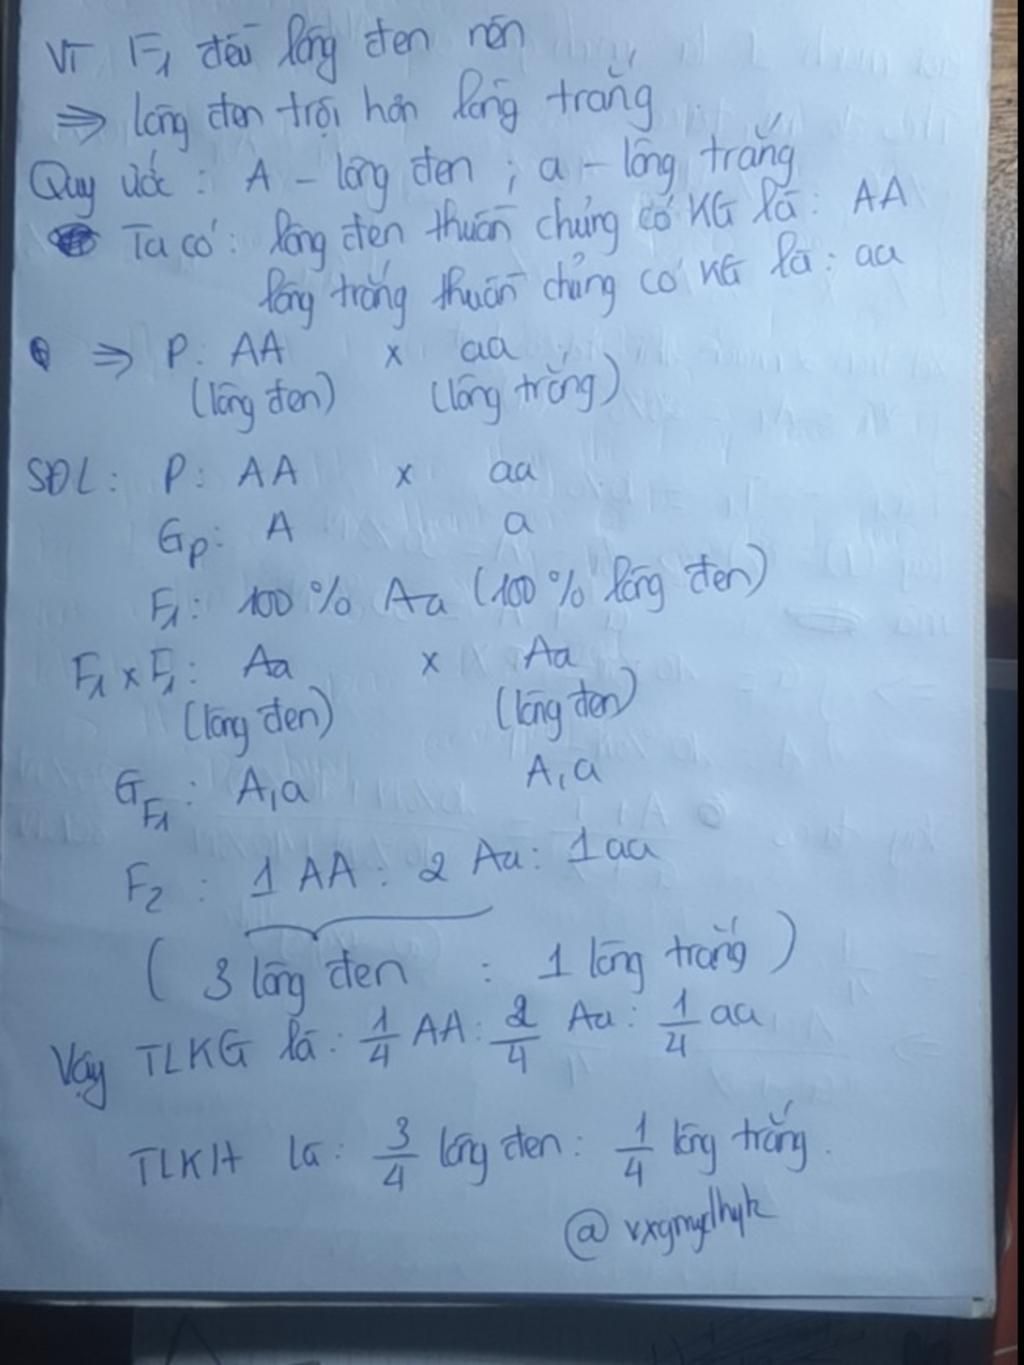 Vì F1 đều lông đen nên
⇒ lông đen trội hơn lông trắng
Quy ước : A – lông đen ; a – lông trắng
Ta có : lông đen thuần chủng có KG là : AA
lông trắng thuần chủng có KG là : aa
⇒ P : AA x aa
(lông đen) (lông trắng)
SĐL : P : AA x aa
GP : A a
F1 : 100 % Aa (100 % lông đen)
F1 x F1 : Aa x Aa
(lông đen) (lông đen)
GF1 : A, a A, a
F2 : 1 AA : 2 Aa : 1 aa
( 3 lông đen : 1 lông trắng )
Vậy TLKG là : 1/4 AA : 2/4 Aa : 1/4 aa
TLKH là : 3/4 lông đen : 1/4 lông trắng .